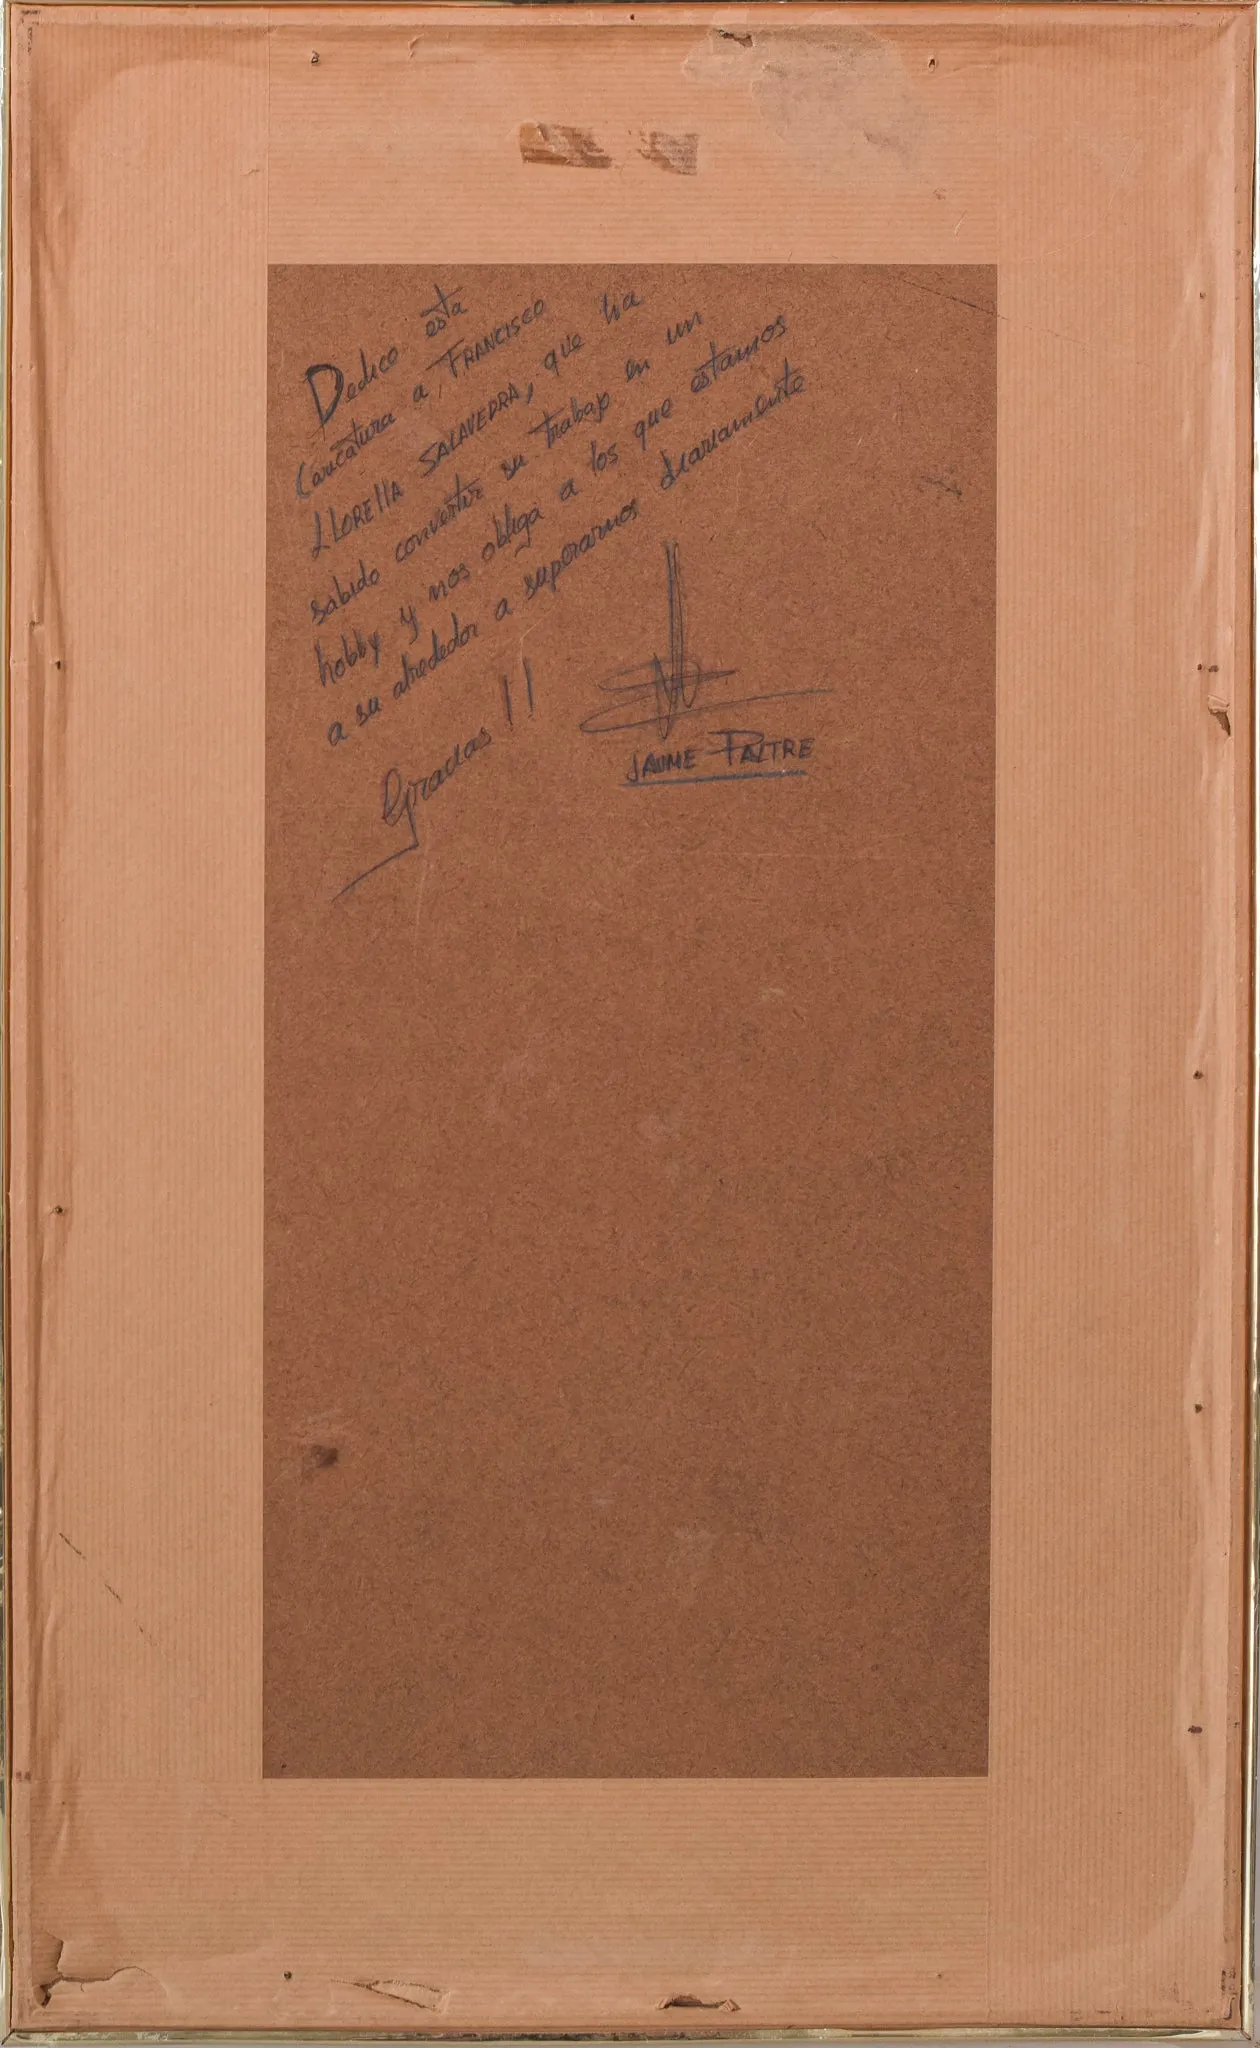 Dedico esta
Caricatura a FRANCISCO
LLORELLA SALAVEDRA, que ha
sabido convertir su trabajo en un
hobby y nos obliga a los que estamos
a su alrededor a superarnos diariamente
Gracias !!
JAUME PALTRE